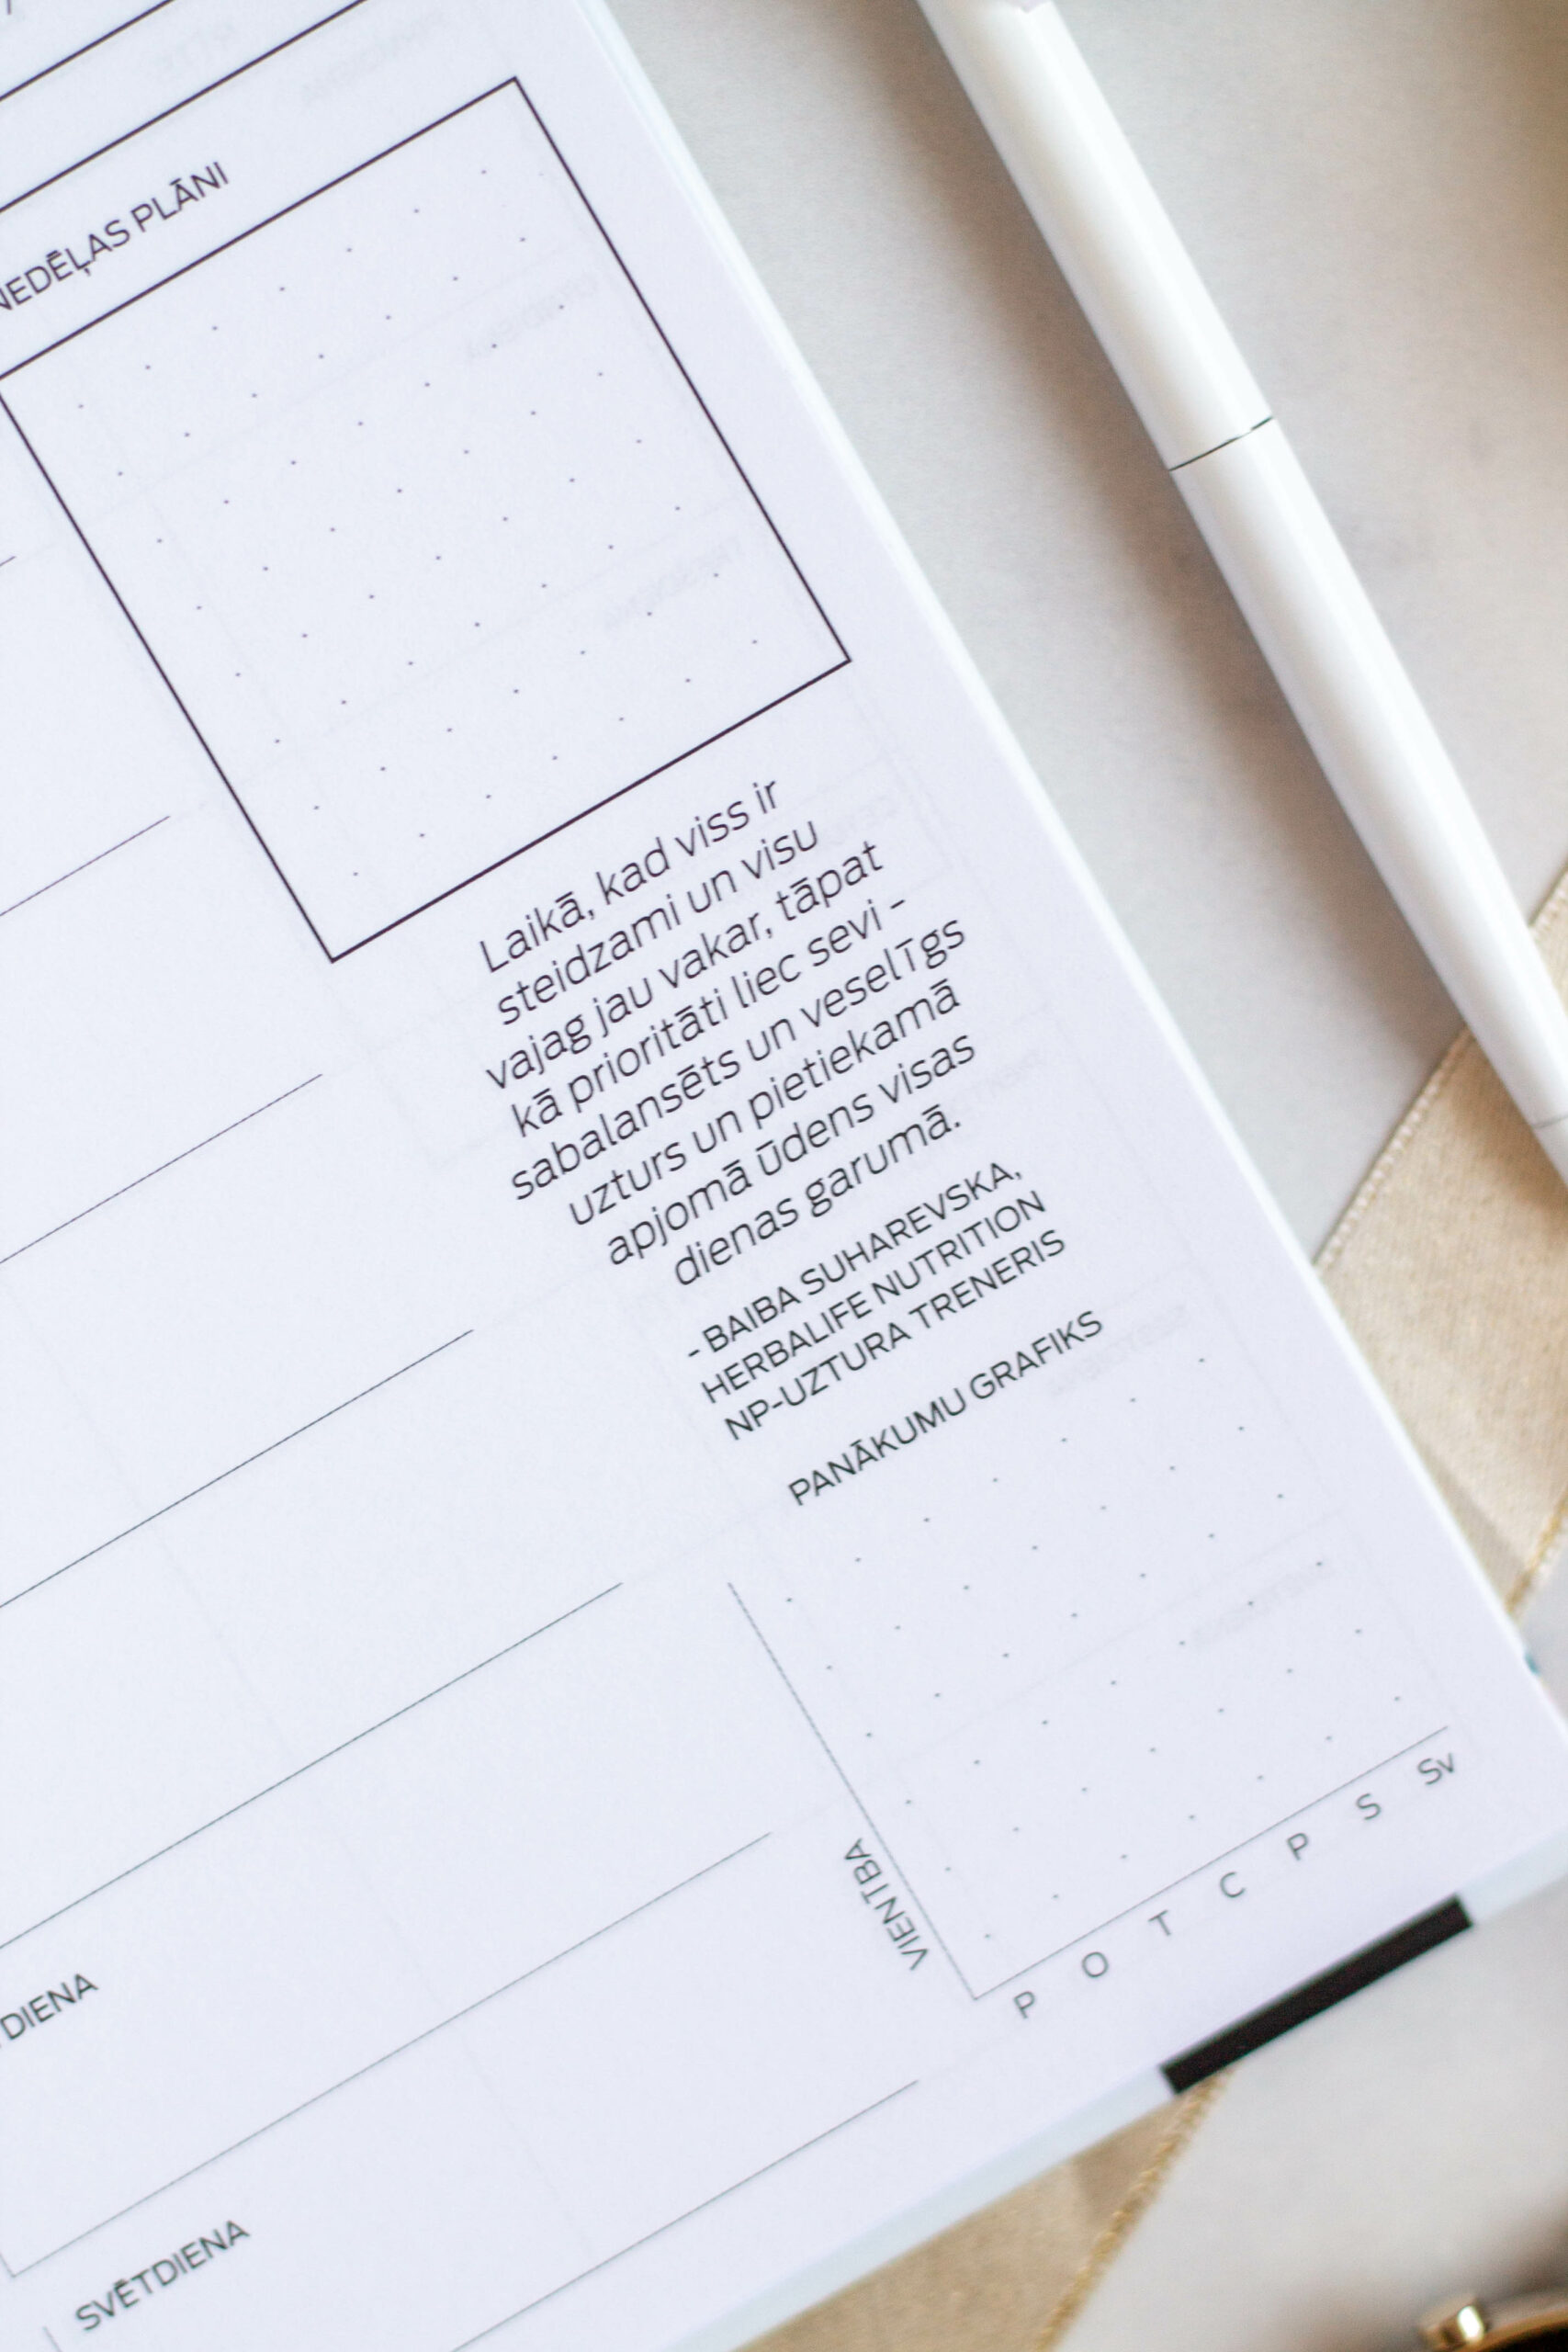 NEDĒĻAS PLĀNI
Laikā, kad viss ir
steidzami un visu
vajag jau vakar, tāpat
kā prioritāti liec sevi -
sabalansēts un veselīgs
uzturs un pietiekamā
apjomā ūdens visas
dienas garumā.
- BAIBA SUHAREVSKA,
HERBALIFE NUTRITION
NP-UZTURA TRENERIS
PANĀKUMU GRAFIKS
VIENĪBA
P O T C P S Sv
SVĒTDIENA